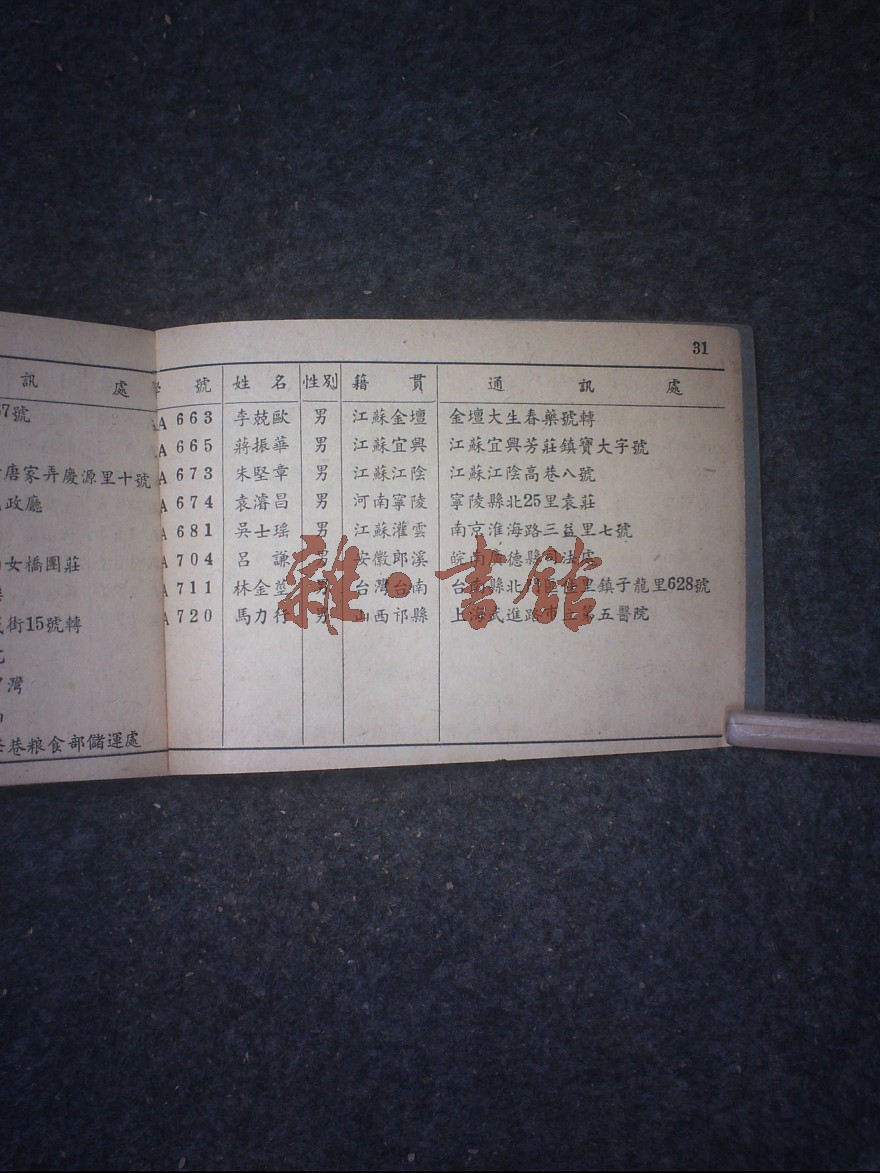 31
訊 處
7號
唐家弄慶源里十號
政廳
女橋團莊
街15號轉
灣
巷粮食部儲運處
號 姓 名 性別 籍 貫 通 訊 處
A 663 李兢歐 男 江蘇金壇 金壇大生春藥號轉
A 665 蔣振華 男 江蘇宜興 江蘇宜興芳莊鎮寶大字號
A 673 朱堅章 男 江蘇江陰 江蘇江陰高巷八號
A 674 袁濬昌 男 河南寧陵 寧陵縣北25里袁莊
A 681 吳士瑤 男 江蘇灌雲 南京淮海路三益里七號
A 704 呂 謙 男 安徽郎溪 皖南廣德縣司法處
A 711 林金莖 男 台灣台南 台南縣北門區佳里鎮子龍里628號
A 720 馬力行 男 山西祁縣 上海武進路市立第五醫院
雜·書館